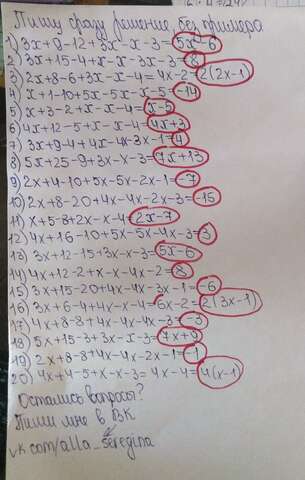 Пишу сразу решение, без примера
1) 3x+9-12+3x-x-3=5x-6
2) 3x+15-4+x-x-3x-3=8
3) 2x+8-6+3x-x-4=4x-2=2(2x-1)
4) x+1-10+5x-5x-x-5=-14
5) x+3-2+x-x-4=x-5
6) 4x+12-5+x-x-4=4x+3
7) 3x+9-4+4x-4x-3x-1=4
8) 5x+25-9+3x-x-3=7x+13
9) 2x+4-10+5x-5x-2x-1=-7
10) 2x+8-20+4x-4x-2x-3=-15
11) x+5-8+2x-x-4=2x-7
12) 4x+16-10+5x-5x-4x-3=3
13) 3x+12-15+3x-x-3=5x-6
14) 4x+12-2+x-x-4x-2=8
15) 3x+15-20+4x-4x-3x-1=-6
16) 3x+6-4+4x-x-4=6x-2=2(3x-1)
17) 4x+8-8+4x-4x-4x-3=-3
18) 5x+15-3+3x-x-3=7x+9
19) 2x+8-8+4x-4x-2x-1=-1
20) 4x+4-5+x-x-3=4x-4=4(x-1)
Остались вопросы?
Пиши мне в ВК
vk.com/alla_seregina